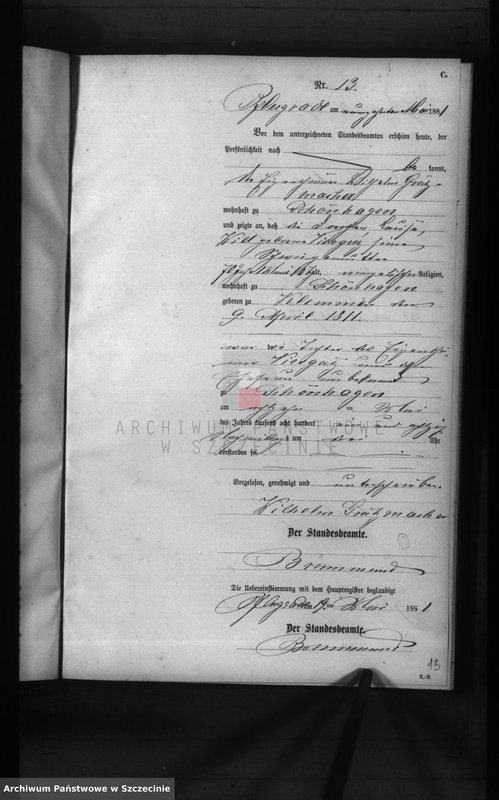 C.
Nr. 13.
Pflugrade am neunzehnten Mai 1881
Vor dem unterzeichneten Standesbeamten erschien heute, der
Persönlichkeit nach
be kannt,
der Eigenthümer Wilhelm Grütz-
macher
wohnhaft zu Schönhagen
und zeigte an, daß die Louise,
geborene seine
Schwiegermutter
70 Jahre alt, evangelischer Religion,
wohnhaft zu Schönhagen
geboren zu den
9. April 1811.
war die Tochter des Eigenthü-
mer und
Ehefrau unbekannt
zu Schönhagen
am ten Mai
des Jahres tausend acht hundert und
Nachmittags um Uhr
verstorben sei.
Vorgelesen, genehmigt und unterschrieben
Wilhelm Grützmacher
Der Standesbeamte.
Brummund
Die Uebereinstimmung mit dem Hauptregister beglaubigt
Pflugrade am 19. ten Mai 1881
Der Standesbeamte.
Brummund
13
ARCHIWUM PAŃSTWOWE
W SZCZECINIE
Archiwum Państwowe w Szczecinie